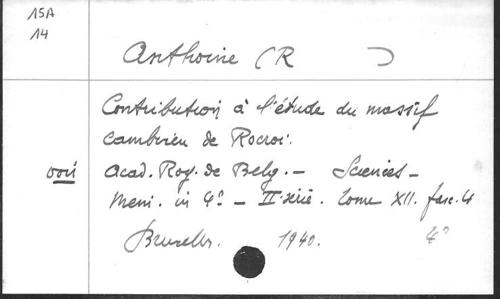 15A
14
Anthoine (R      )
Contribution à l'étude du massif
cambrien de Rocroi.
voir Acad. Roy. de Belg. – Sciences –
Mem. in 4° – II série. tome XII. fasc. 4
Bruxelles. 1940. 4°